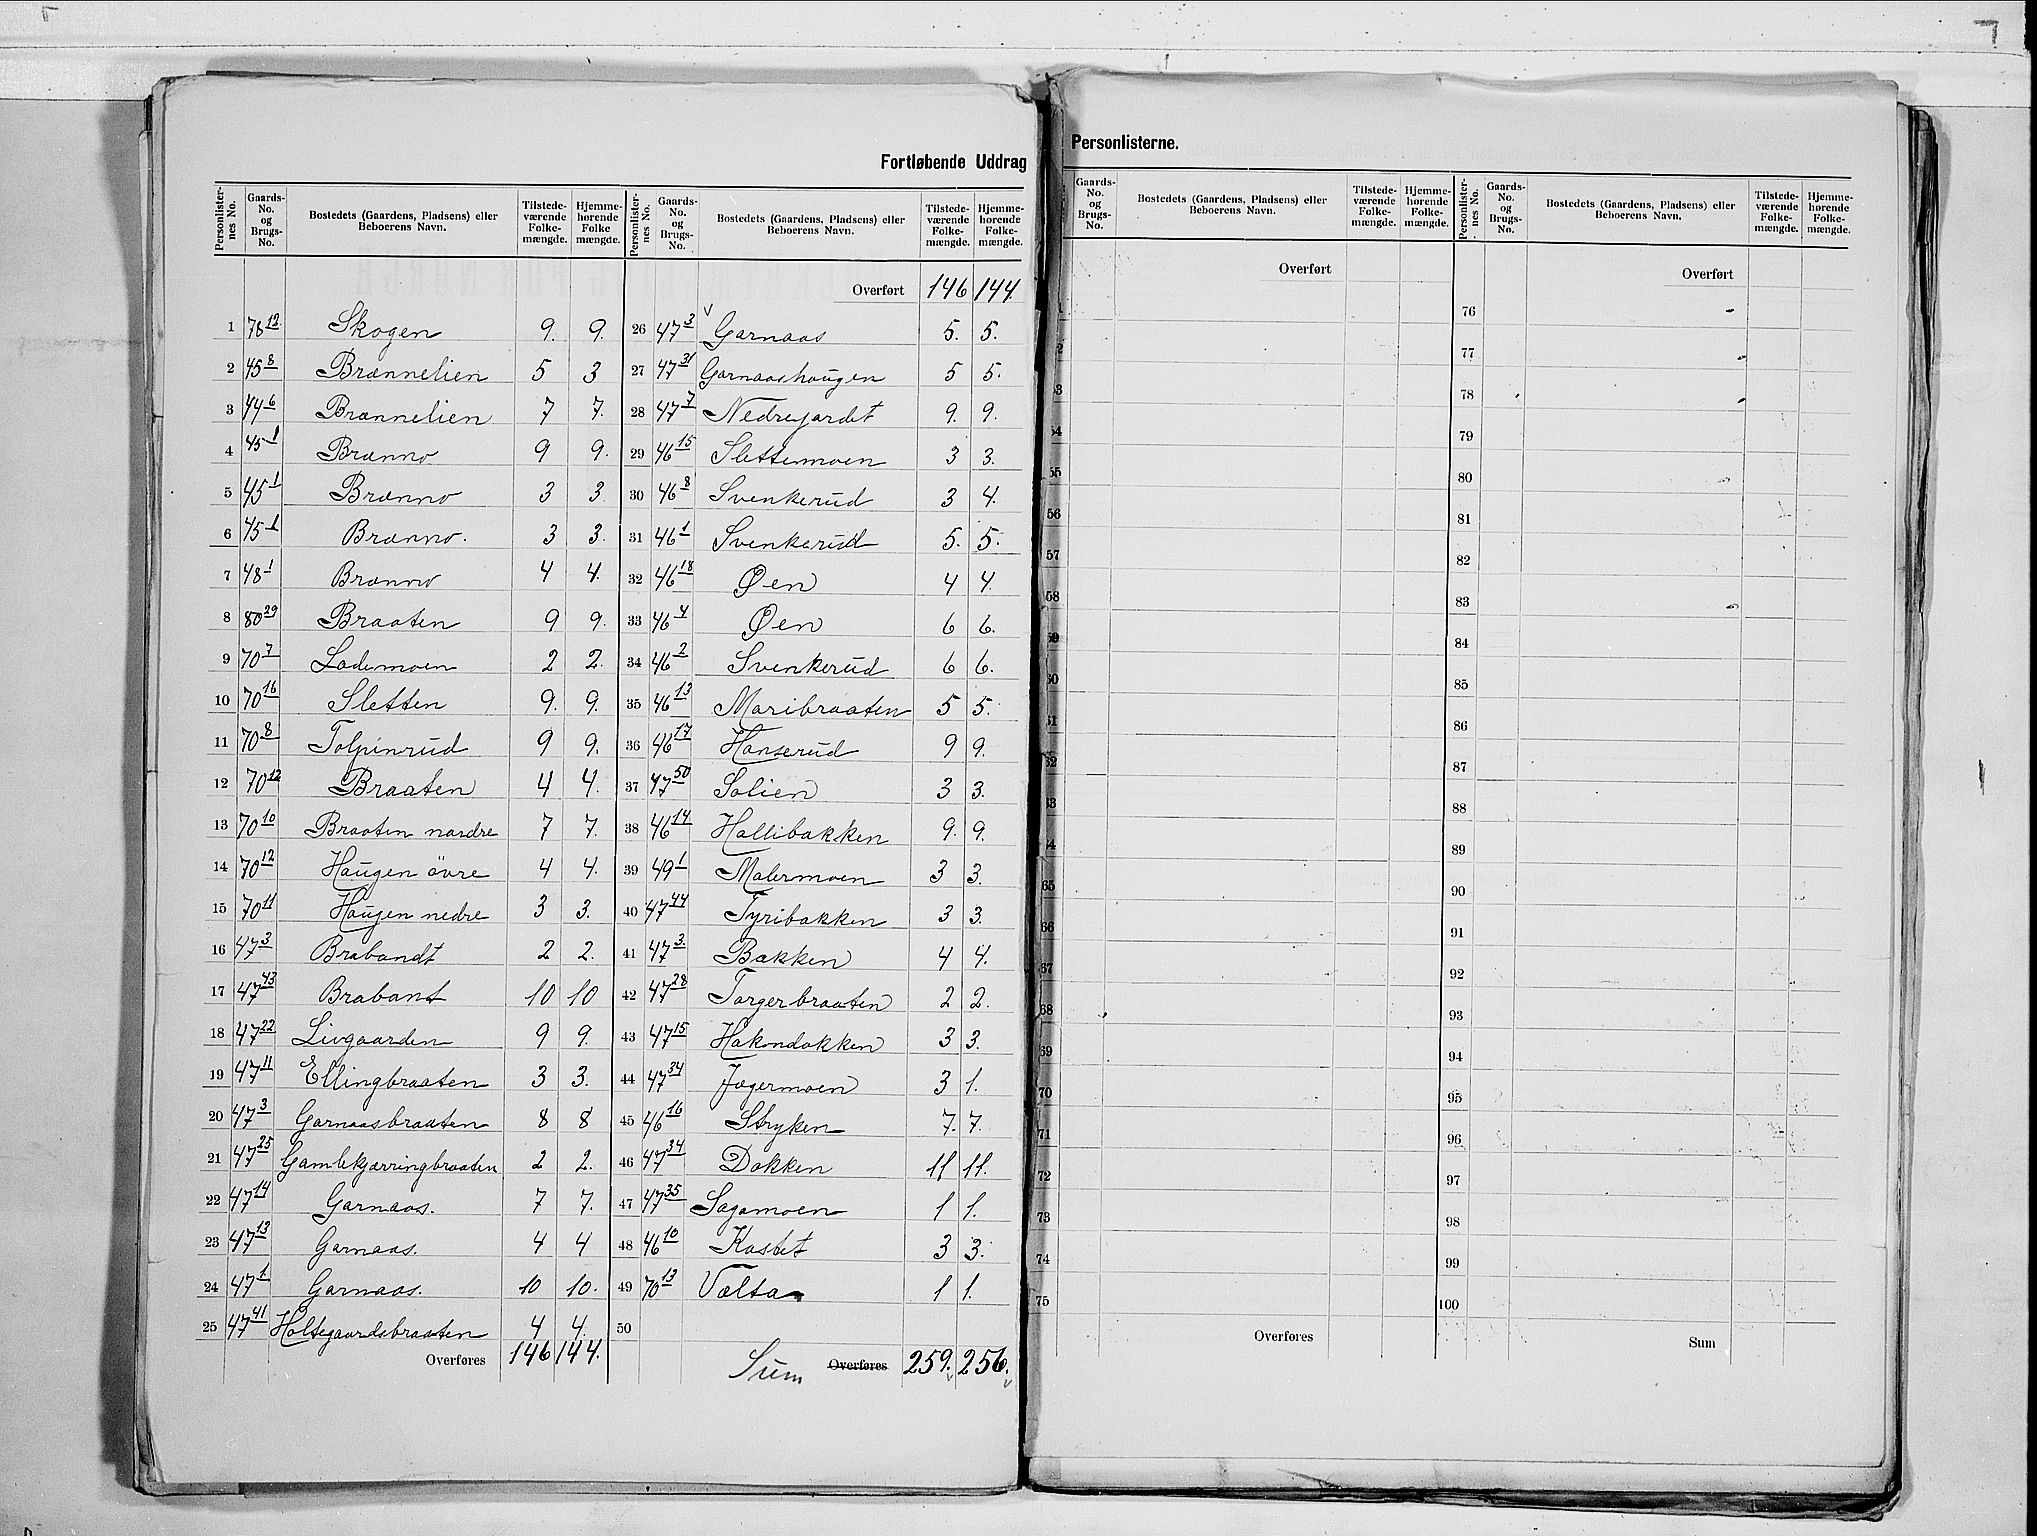 Fortløbende Uddrag
Personlister-nes No. | Gaards-No. og Brugs-No. | Bostedets (Gaardens, Pladsens) eller Beboerens Navn. | Tilstede-værende Folke-mængde. | Hjemme-hørende Folke mængde.
1 78 12 Skogen 9. 9.
2 45 8 Brænnelien 5 3
3 44 6 Brænnelien 7 7.
4 45 1 Brænno 9 9.
5 45 1 Brænno 3 3
6 45 1 Brænno. 3 3.
7 48 1 Brænno 4 4.
8 80 29 Braaten 9 9.
9 70 7 Lademoen 2 2.
10 70 16 Sletten 9. 9.
11 70 8 Tolpinrud 9 9.
12 70 12 Braaten 4 4.
13 70 10 Braaten nordre 7 7.
14 70 12 Haugen övre 4 4.
15 70 11 Haugen nedre 3 3.
16 47 3 Brabandt 2 2.
17 47 43 Brabant 10 10
18 47 22 Livgaarden 9 9.
19 47 11 Ellingbraaten 3 3.
20 47 3 Garnaasbraaten 8 8
21 47 25 Gamlekjærringbraaten 2 2.
22 47 14 Garnaas. 7 7.
23 47 13 Garnaas. 4 4
24 47 1 Garnaas. 10 10.
25 47 41 Holtegaardsbraaten 4 4.
Overføres 146 144.
Personlister-nes No. | Gaards-No. og Brugs-No. | Bostedets (Gaardens, Pladsens) eller Beboerens Navn. | Tilstede-værende Folke-mængde. | Hjemme-hørende Folke-mængde.
Overført 146 144.
26 47 3 Garnaas 5. 5.
27 47 31 Garnaashaugen 5 5.
28 47 7 Nedrejordet 9. 9.
29 46 15 Slettemoen 3 3.
30 46 8 Svenkerud 3 4.
31 46 1 Svenkerud 5. 5.
32 46 18 Øen 4 4.
33 46 4 Øen 6 6.
34 46 2 Svenkerud 6 6.
35 46 13 Maribraaten 5 5.
36 46 17 Hanserud 9 9.
37 47 50 Solien 3 3.
38 46 14 Hallibakken 9. 9.
39 49 1 Malermoen 3 3.
40 47 44 Tyribakken 3 3.
41 47 3. Bakken 4 4.
42 47 28 Torgerbraaten 2 2.
43 47 15 Hakondokken 3 3.
44 47 34 Jægermoen 3 1.
45 46 16 Stryken 7. 7.
46 47 34 Dokken 11 11.
47 47 35 Sagamoen 1 1.
48 46 10 Kastet 3 3.
49 70 13 Vælta 1 1.
50
Sum Overføres 259. 256.
Personlisterne.
Gaards-No. og Brugs-No. | Bostedets (Gaardens, Pladsens) eller Beboerens Navn. | Tilstede-værende Folke-mængde. | Hjemme-hørende Folke-mængde.
Overført
1
52
53
54
55
56
57
58
59
60
61
62
63
64
65
66
67
68
69
70
71
72
73
74
75
Overføres
Personlister-nes No. | Gaards-No. og Brugs-No. | Bostedets (Gaardens, Pladsens) eller Beboerens Navn. | Tilstede-værende Folke-mængde. | Hjemme-hørende Folke-mængde.
Overført
76
77
78
79
80
81
82
83
84
85
86
87
88
89
90
91
92
93
94
95
96
97
98
99
100
Sum